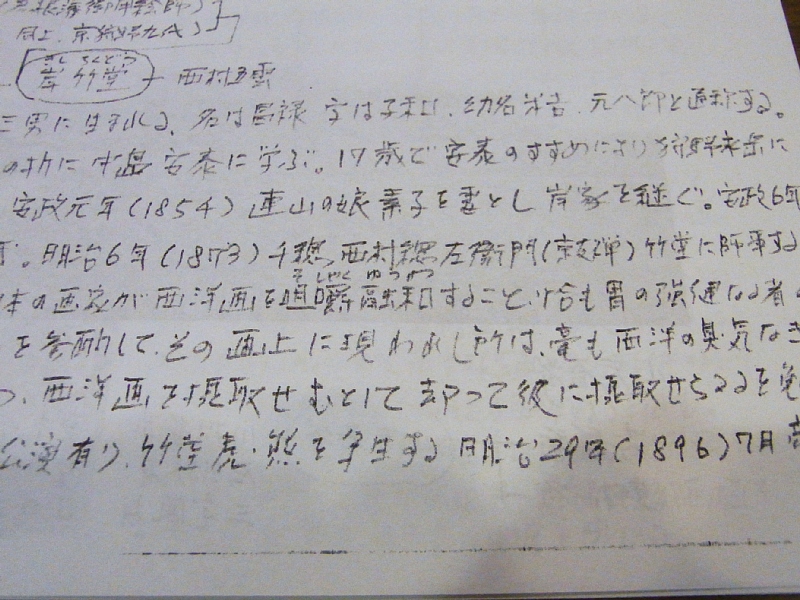 同上、京狩野九代)
岸竹堂 — 西村五雲
きし ちくどう
三男に生まれる、名は昌禄 字は子和、幼名米吉、元八郎と通称する。
のオに中島安泰に学ぶ。17歳で安泰のすすめにより狩野永岳に
安政元年(1854) 連山の娘素子を妻とし岸家を継ぐ。安政6年
明治6年(1873) 千總、西村總左衛門(京友禅)竹堂に師事する
そしゃく ゆうわ
本の画家が西洋画を咀嚼融和すること恰も胃の強健なる者の
を参酌して、その画上に現われし所は、毫も西洋の臭気なき
つ、西洋画を摂取せむとして却って彼に摂取せらるるを免
公演有り、竹堂虎・熊を写生する 明治29年(1896)7月